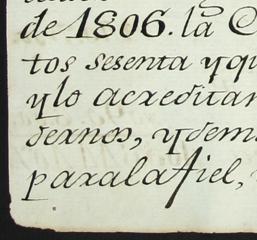 de 1806. la C
tos sesenta y qu
y lo acreditan
dernos, y dem
paralafiel,